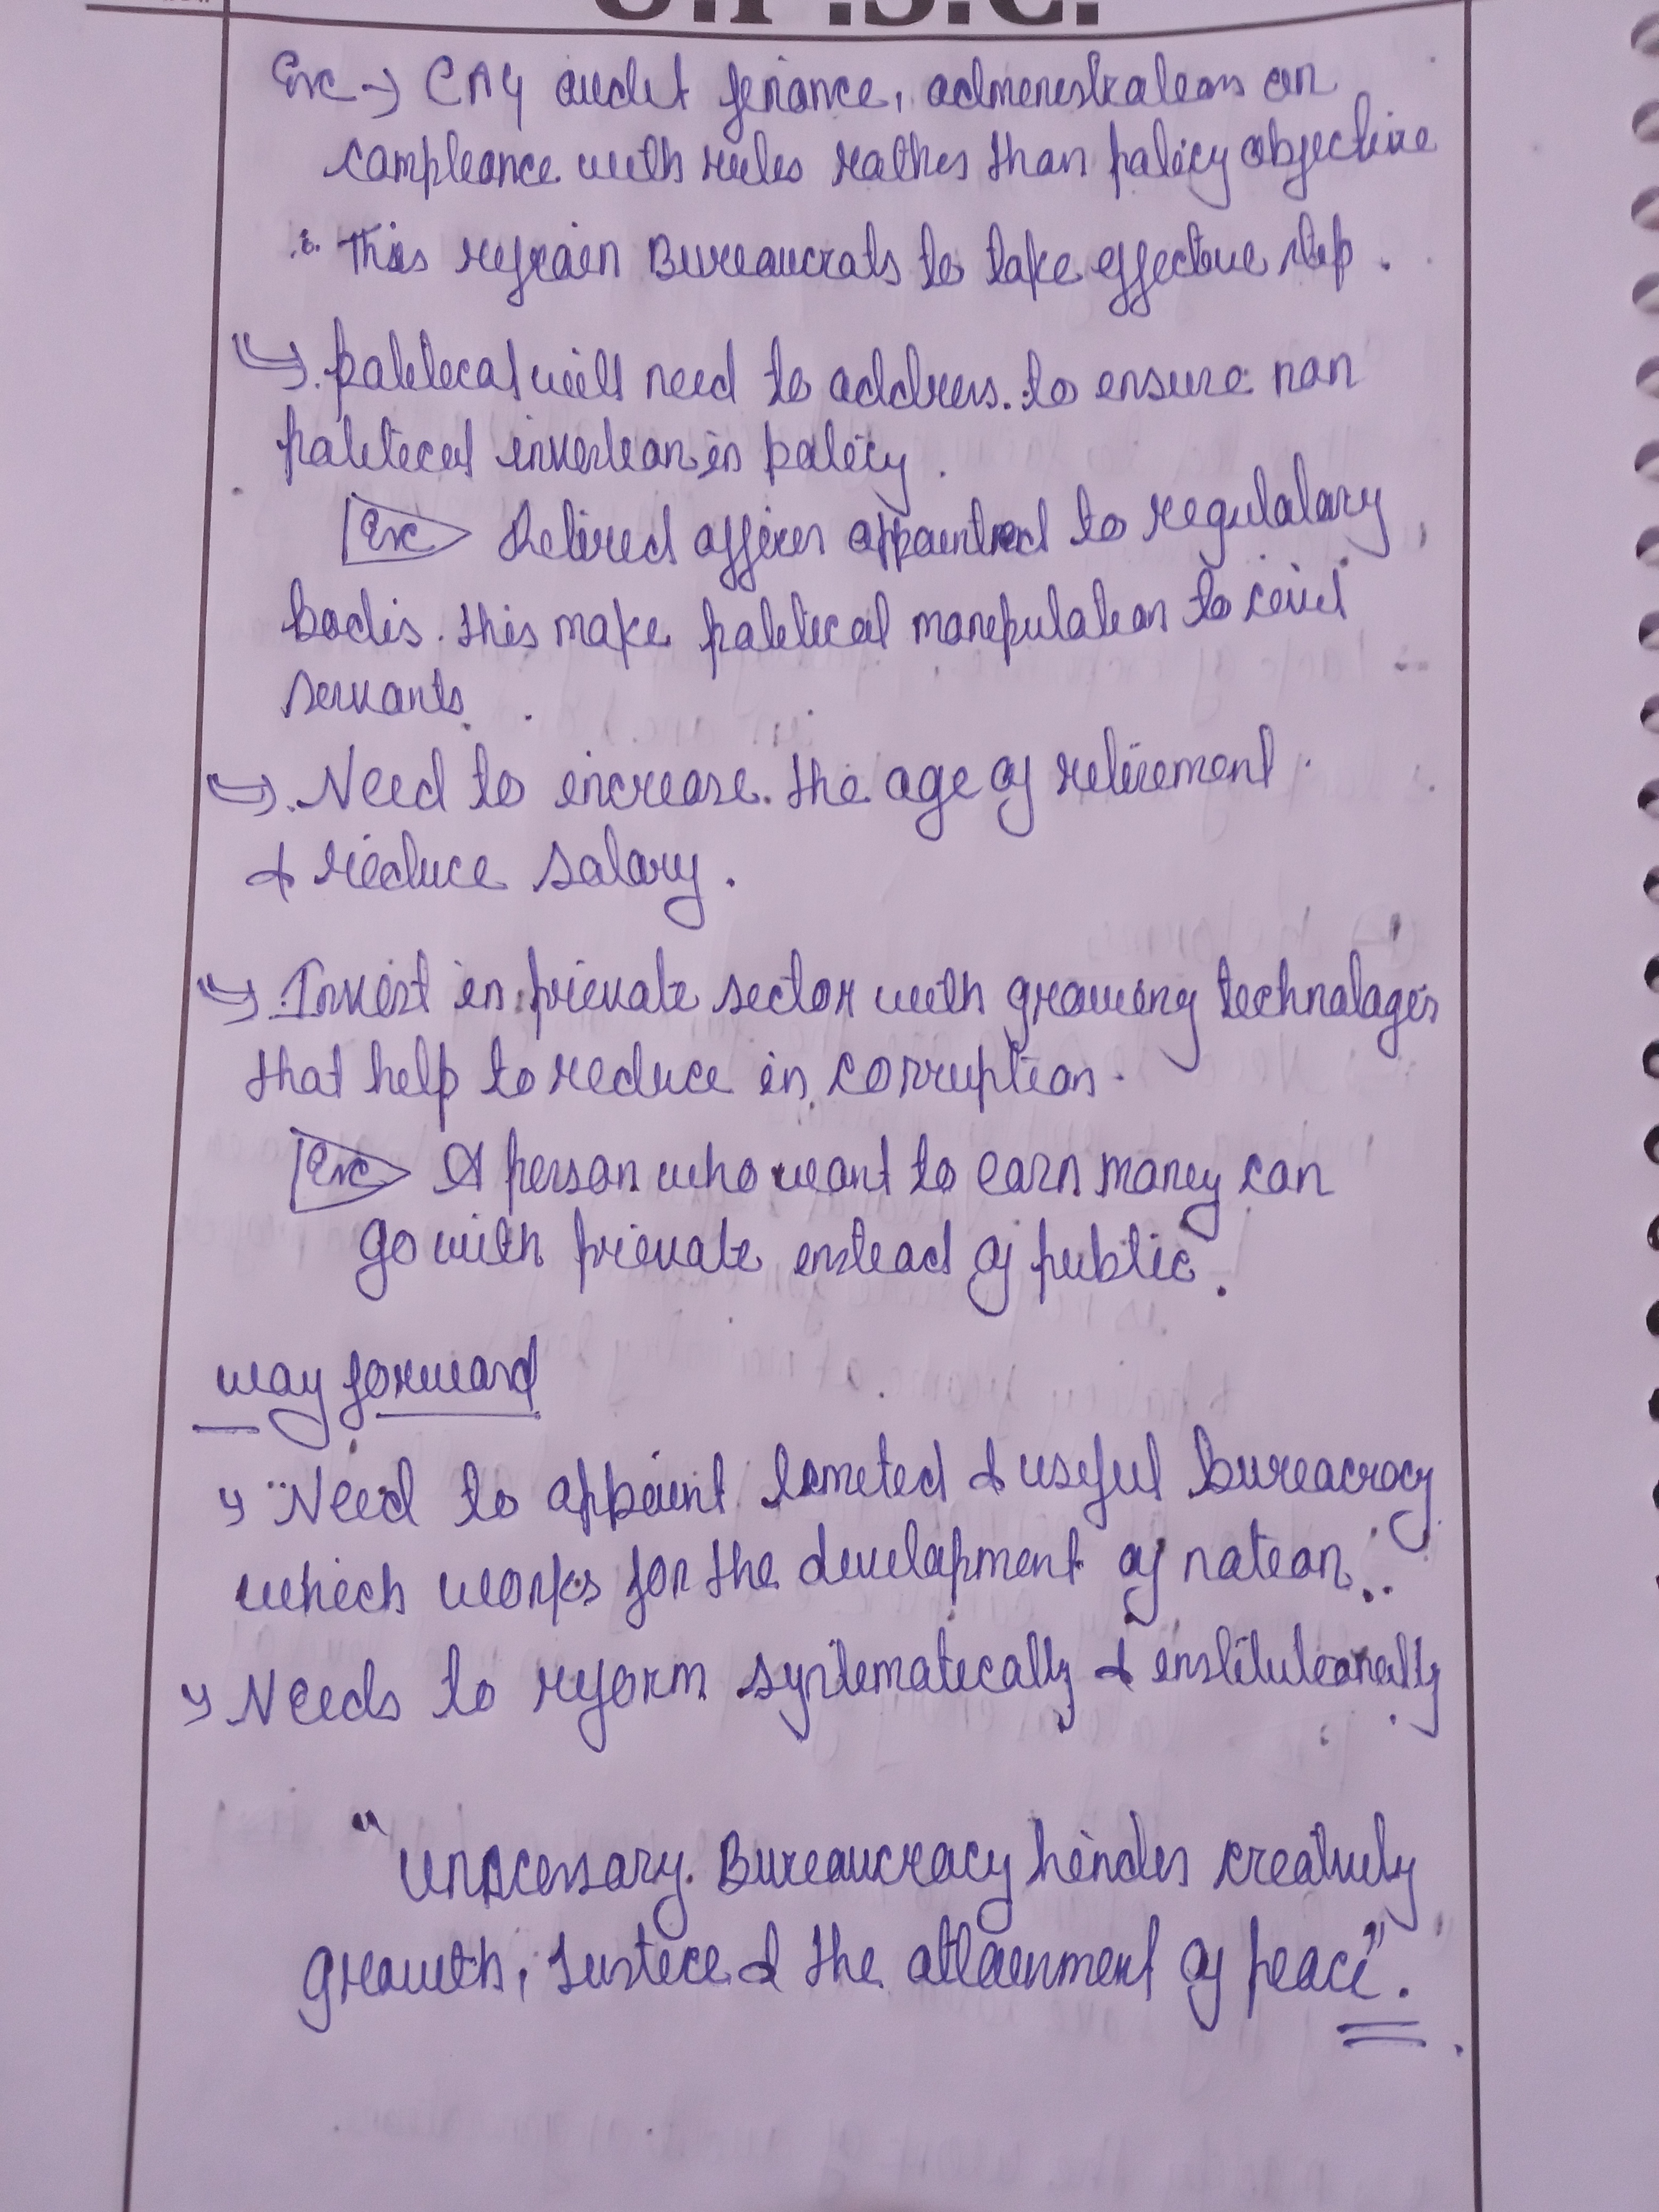 U.P.S.C.
Ex → CAG audit finance, administration on
compliance with rules rather than policy objective
∴ This refrain Bureaucrats to take effective step.
⇒ political will need to address. to ensure non
political invention in policy.
Ex Retired officer appointed to regulatary
bodis. this make political manipulation to civil
servants.
⇒ Need to increase the age of retirement
& reduce salary.
⇒ Invest in private sector with growing technologies
that help to reduce in corruption.
Ex A person who want to earn money can
go with private instead of public.
way forward
→ Need to appoint limited & useful bureacracy
which works for the development of nation..
→ Needs to reform systematically & institutionally
"Unncessary Bureaucracy hinders creativity
growth, Justice & the attainment of peace".